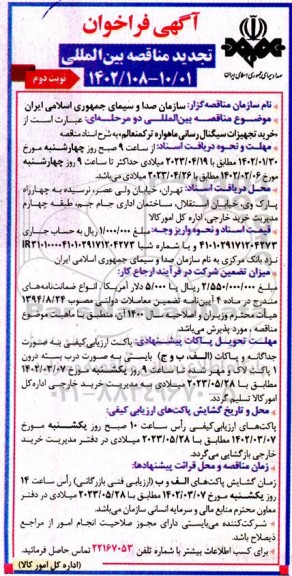 آگهی فراخوان
تجدید مناقصه بین‌المللی
۱۴۰۲/۱۰۸-۱۰/۰۱
نوبت دوم
صدا و سیمای جمهوری اسلامی ایران
نام سازمان مناقصه‌گزار: سازمان صدا و سیمای جمهوری اسلامی ایران
موضوع مناقصه بین‌المللی دو مرحله‌ای: عبارت است از
«خرید تجهیزات سیگنال رسانی ماهواره ترکمنعالم» به شرح اسناد مناقصه
مهلت و نحوه دریافت اسناد: از ساعت ۹ صبح روز چهارشنبه مورخ
۱۴۰۲/۰۱/۳۰ مطابق با ۲۰۲۳/۰۴/۱۹ میلادی حداکثر تا ساعت ۹ روز چهارشنبه
مورخ ۱۴۰۲/۰۲/۰۶ مطابق با ۲۰۲۳/۰۴/۲۶ میلادی می‌باشد.
محل دریافت اسناد: تهران، خیابان ولی عصر، نرسیده به چهارراه
پارک وی، خیابان استقلال، ساختمان اداری جام جم، طبقه چهارم
مدیریت خرید خارجی، اداره کل امور کالا
قیمت اسناد و نحوه واریز وجه: مبلغ ۱/۰۰۰/۰۰۰ ریال به حساب جاری
۴۱۰۱۰۲۹۱۷۱۲۰۴۲۷۳ و با شماره شبا IR۳۱۰۱۰۰۰۰۴۱۰۱۰۲۹۱۷۱۲۰۴۲۷۳
نزد بانک مرکزی به نام سازمان صدا و سیمای جمهوری اسلامی ایران
میزان تضمین شرکت در فرآیند ارجاع کار:
مبلغ ۲/۵۵۰/۰۰۰/۰۰۰ ریال یا ۵/۰۰۰ دلار آمریکا. انواع ضمانت‌نامه‌های
مندرج در ماده ۴ آیین‌نامه تضمین معاملات دولتی مصوب ۱۳۹۴/۸/۲۴
هیأت محترم وزیران و اصلاحیه سال ۱۴۰۰ آن منطبق با ماهیت موضوع
مناقصه، مورد پذیرش می‌باشد.
مهلت تحویل پاکات پیشنهادی: پاکت ارزیابی کیفی به صورت
جداگانه و پاکات (الف، ب و ج) بایستی به صورت درب بسته درون
۱ پاکت لاک و مهر شده تا ساعت ۹ روز یکشنبه مورخ ۱۴۰۲/۰۳/۰۷
مطابق با ۲۰۲۳/۰۵/۲۸ میلادی به مدیریت خرید خارجی اداره کل
امور کالا تسلیم گردد.
محل و تاریخ گشایش پاکت‌های ارزیابی کیفی:
پاکت‌های ارزیابی کیفی رأس ساعت ۱۰ صبح روز یکشنبه مورخ
۱۴۰۲/۰۳/۰۷ مطابق با ۲۰۲۳/۰۵/۲۸ میلادی در دفتر مدیریت خرید
خارجی بازگشایی می‌گردد.
زمان مناقصه و محل قرائت پیشنهادها:
زمان گشایش پاکت‌های الف و ب (ارزیابی فنی بازرگانی) رأس ساعت ۱۴
روز یکشنبه مورخ ۱۴۰۲/۰۳/۰۷ مطابق با ۲۰۲۳/۰۵/۲۸ میلادی در دفتر
معاون محترم منابع مالی و سرمایه انسانی سازمان می‌باشد.
شرکت‌کننده می‌بایستی دارای مجوز صلاحیت انجام امور از مراجع
ذیصلاح باشد.
برای کسب اطلاعات بیشتر با شماره تلفن ۲۲۱۶۷۰۵۳ تماس حاصل فرمائید.
(اداره کل امور کالا)